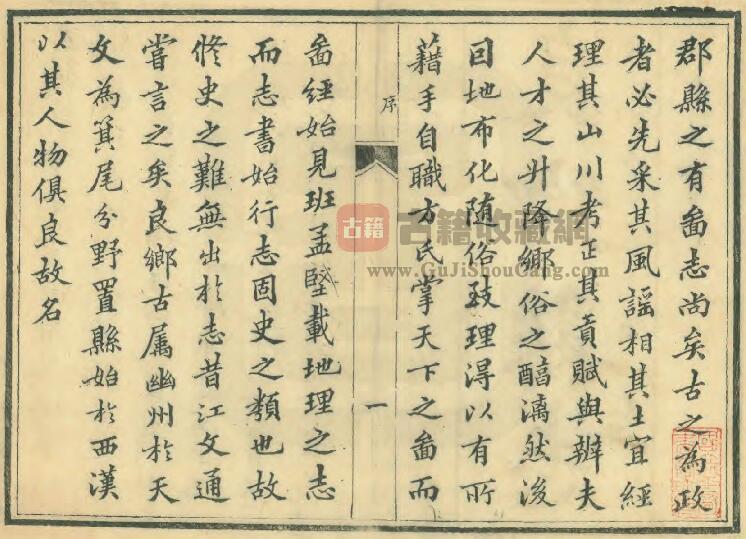 郡縣之有啚志尚矣古之為政
者必先采其風謡相其土宜經
理其山川考正其貢賦與辦夫
人才之升降鄉俗之醕漓然後
因地布化随俗致理得以有所
藉手自職方氏掌天下之啚而
序
一
啚經始見班孟堅載地理之志
而志書始行志固史之類也故
修史之難無出於志昔江文通
嘗言之矣良鄉古属幽州於天
文為箕尾分野置縣始於西漢
以其人物俱良故名
古籍 古籍收藏網
www.GuJiShouCang.com